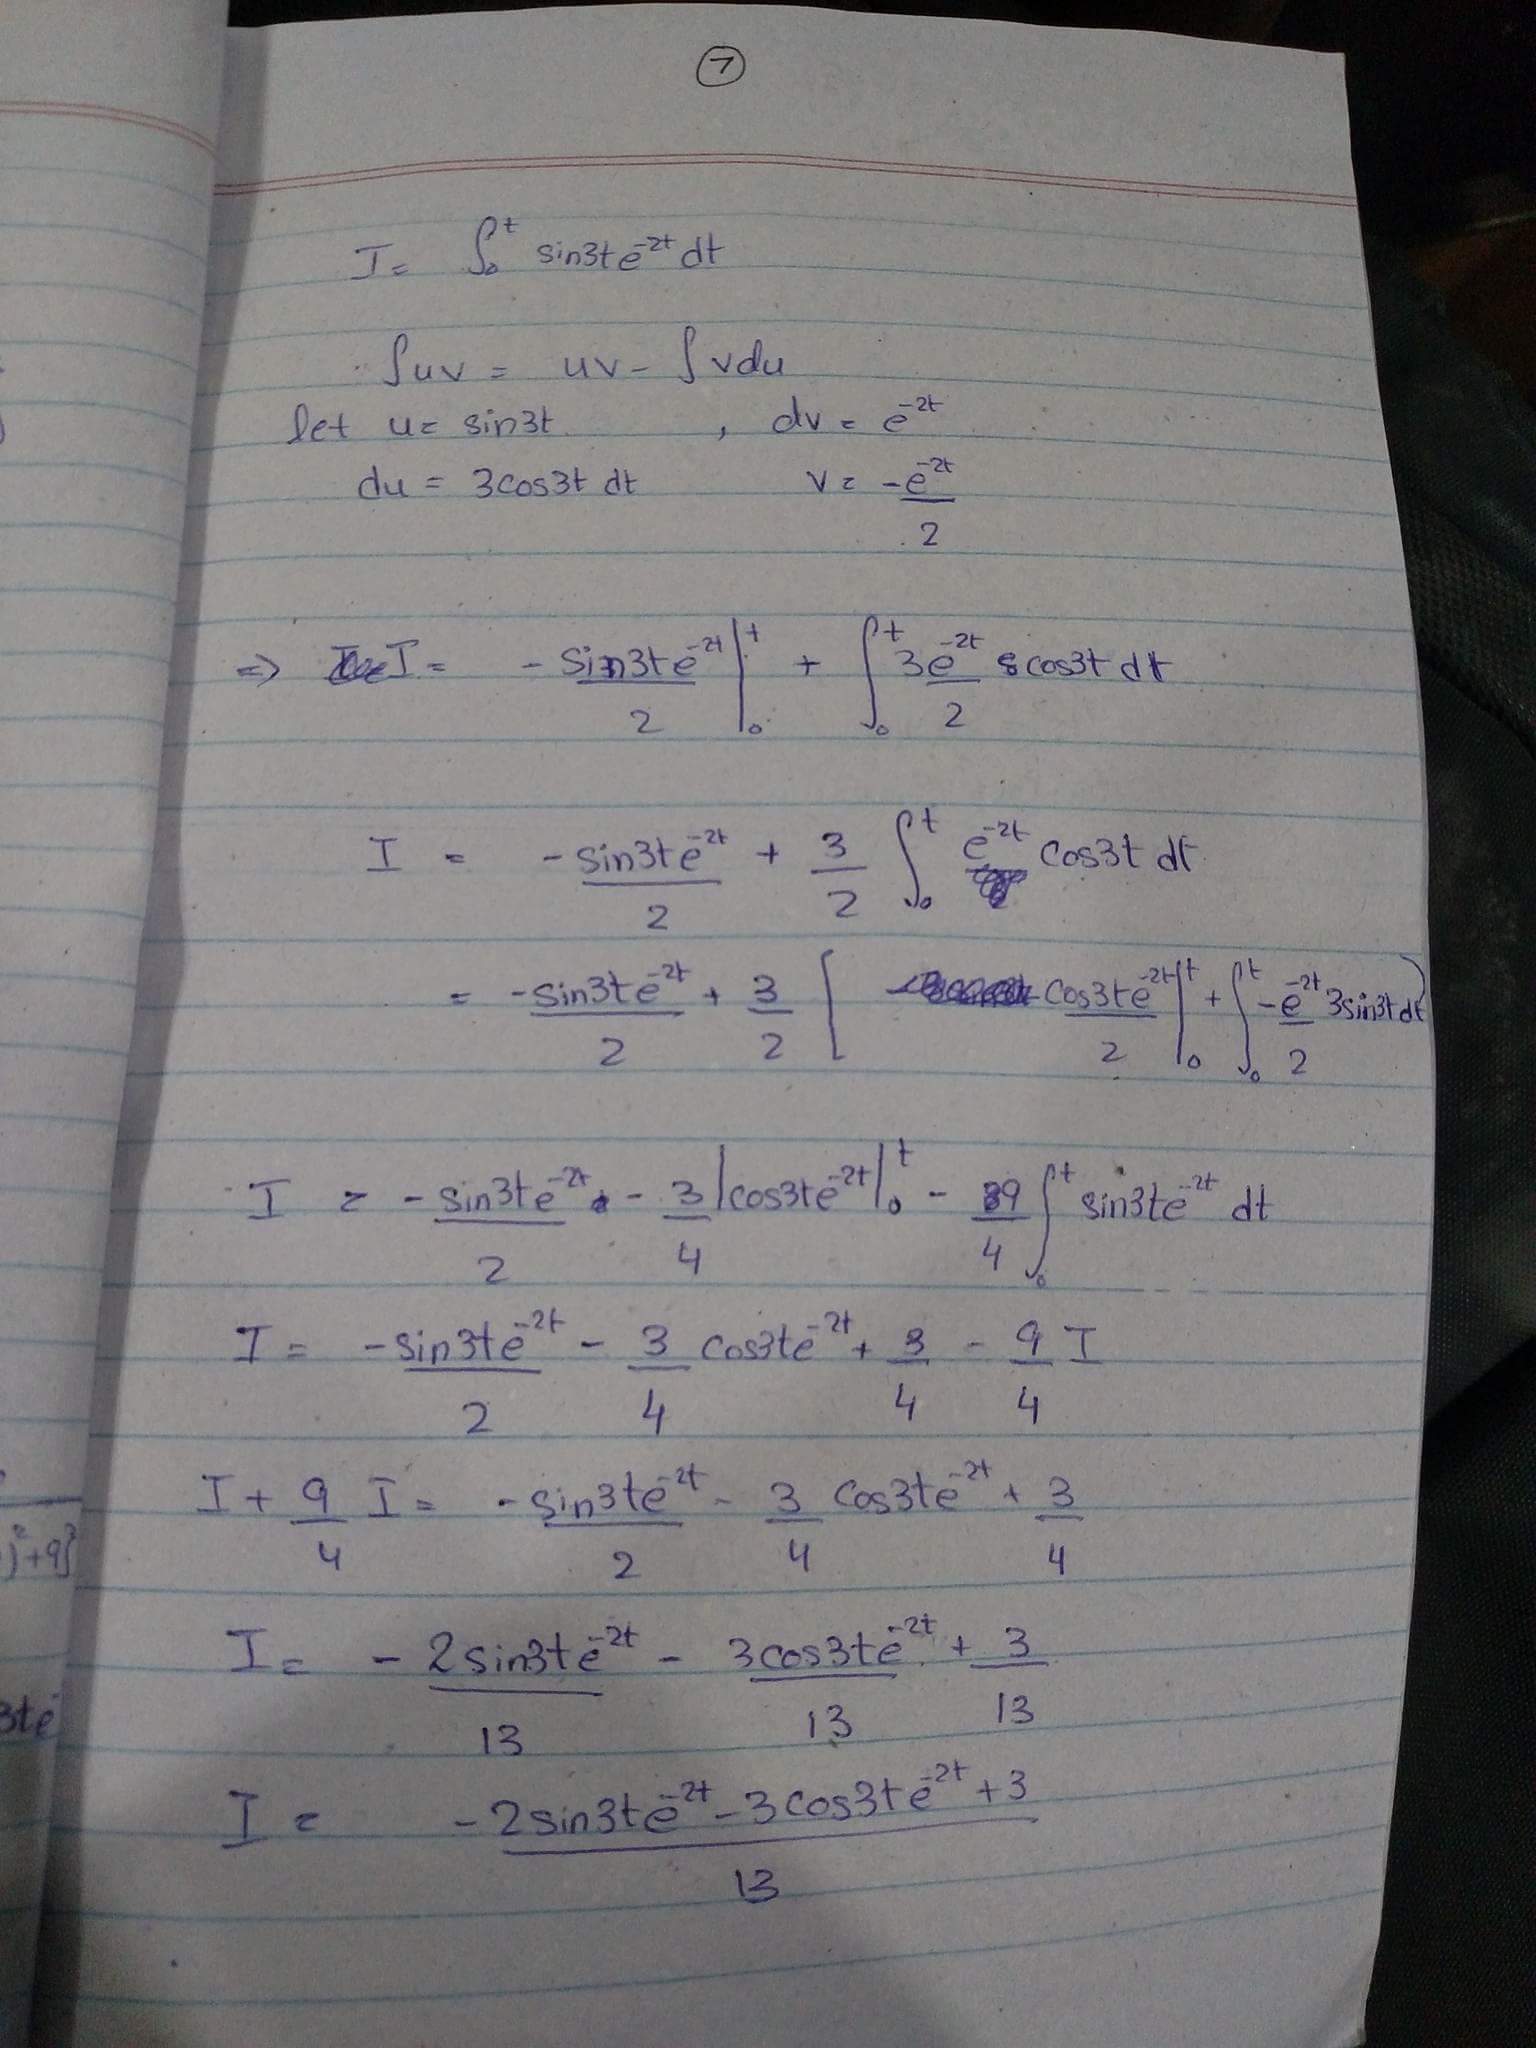 7
I = ∫₀ᵗ sin3t e^-2t dt
∫uv = uv - ∫vdu
let u = sin3t , dv = e^-2t
du = 3cos3t dt v = -e^-2t/2
=> I = - sin3t e^-2t/2 |₀ᵗ + ∫₀ᵗ 3e^-2t/2 cos3t dt
I = -sin3t e^-2t/2 + 3/2 ∫₀ᵗ e^-2t cos3t dt
= -sin3t e^-2t/2 + 3/2 [ - cos3t e^-2t/2 |₀ᵗ + ∫₀ᵗ -e^-2t/2 3sin3t dt ]
I = -sin3t e^-2t/2 - 3/4 |cos3t e^-2t|₀ᵗ - 9/4 ∫₀ᵗ sin3t e^-2t dt
I = -sin3t e^-2t/2 - 3/4 cos3t e^-2t + 3/4 - 9/4 I
I + 9/4 I = -sin3t e^-2t/2 - 3/4 cos3t e^-2t + 3/4
I = - 2sin3t e^-2t/13 - 3cos3t e^-2t/13 + 3/13
I = -2sin3t e^-2t - 3cos3t e^-2t + 3/13
)²+9}
3te